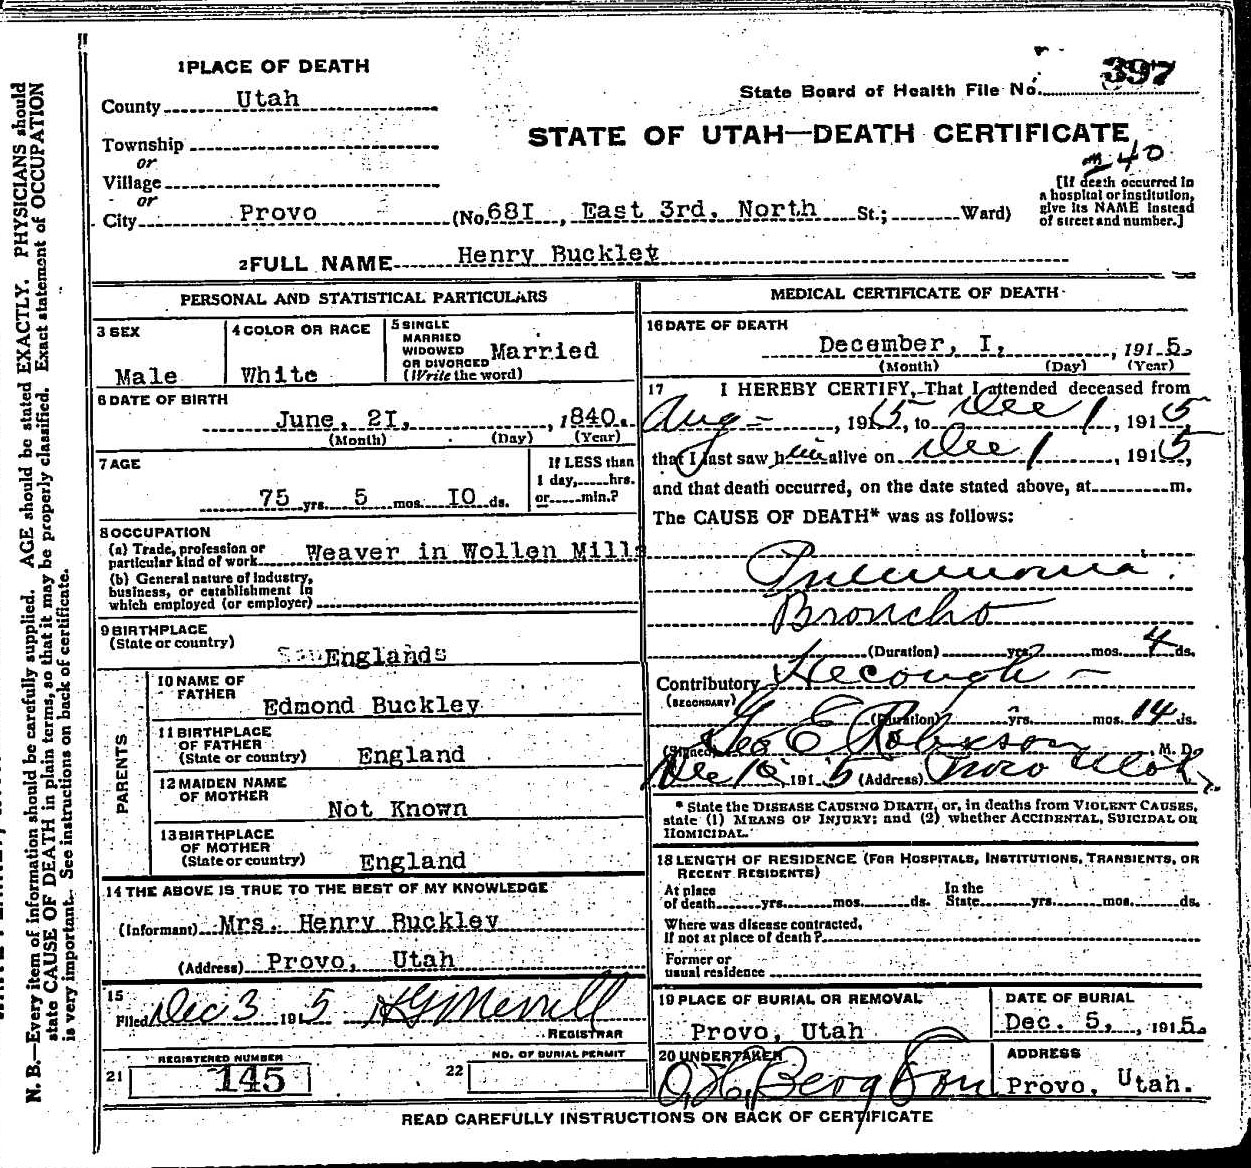 1 PLACE OF DEATH
County Utah
Township
or
Village
or
City Provo (No. 68I, East 3rd. North St.; Ward)
State Board of Health File No. 397
STATE OF UTAH—DEATH CERTIFICATE
40
[If death occurred in
a hospital or institution,
give its NAME instead
of street and number.]
2 FULL NAME Henry Buckley
PERSONAL AND STATISTICAL PARTICULARS
3 SEX
Male
4 COLOR OR RACE
White
5 SINGLE
MARRIED
WIDOWED
OR DIVORCED
(Write the word)
Married
6 DATE OF BIRTH
June, 2I, , 1840.
(Month) (Day) (Year)
7 AGE
75 yrs. 5 mos. IO ds.
If LESS than
1 day, hrs.
or min.?
8 OCCUPATION
(a) Trade, profession or
particular kind of work Weaver in Wollen Mills
(b) General nature of industry,
business, or establishment in
which employed (or employer)
9 BIRTHPLACE
(State or country)
England
PARENTS
10 NAME OF
FATHER
Edmond Buckley
11 BIRTHPLACE
OF FATHER
(State or country) England
12 MAIDEN NAME
OF MOTHER
Not Known
13 BIRTHPLACE
OF MOTHER
(State or country) England
14 THE ABOVE IS TRUE TO THE BEST OF MY KNOWLEDGE
(Informant) Mrs. Henry Buckley
(Address) Provo, Utah
15
Filed Dec 3 1915 H G Merrill
REGISTRAR
REGISTERED NUMBER
21 145
NO. OF BURIAL PERMIT
22
MEDICAL CERTIFICATE OF DEATH
16 DATE OF DEATH
December, I, , 1915.
(Month) (Day) (Year)
17 I HEREBY CERTIFY, That I attended deceased from
Aug , 1915, to Dec 1 1915
that I last saw him alive on Dec 1 , 1915,
and that death occurred, on the date stated above, at m.
The CAUSE OF DEATH* was as follows:
Pneumonia.
Broncho
(Duration) yrs. mos. 4 ds.
Contributory Hecough
(SECONDARY)
(Duration) yrs. mos. 14 ds.
(Signed) Geo E Robinson, M. D.
Dec 1915 (Address) Provo Utah
* State the DISEASE CAUSING DEATH, or, in deaths from VIOLENT CAUSES,
state (1) MEANS OF INJURY; and (2) whether ACCIDENTAL, SUICIDAL OR
HOMICIDAL.
18 LENGTH OF RESIDENCE (FOR HOSPITALS, INSTITUTIONS, TRANSIENTS, OR
RECENT RESIDENTS)
At place
of death yrs. mos. ds.
In the
State yrs. mos. ds.
Where was disease contracted,
If not at place of death?
Former or
usual residence
19 PLACE OF BURIAL OR REMOVAL
Provo, Utah
DATE OF BURIAL
Dec. 5, , 1915.
20 UNDERTAKER
O, H, Berg & Son
ADDRESS
Provo, Utah.
READ CAREFULLY INSTRUCTIONS ON BACK OF CERTIFICATE
N. B.—Every item of information should be carefully supplied. AGE should be stated EXACTLY. PHYSICIANS should
state CAUSE OF DEATH in plain terms, so that it may be properly classified. Exact statement of OCCUPATION
is very important. See instructions on back of certificate.